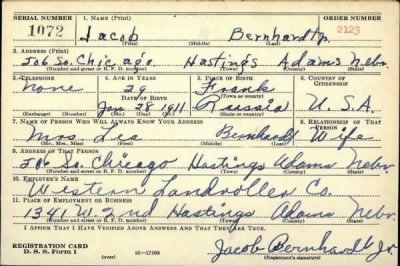 SERIAL NUMBER 1. NAME (Print) ORDER NUMBER
1072 Jacob Bernhardt Jr. 2123
(First) (Middle) (Last)
3. ADDRESS (Print)
206 So. Chicago Hastings Adams Nebr.
(Number and street or R. F. D. number) (Town) (County) (State)
3. TELEPHONE 4. AGE IN YEARS 5. PLACE OF BIRTH 6. COUNTRY OF CITIZENSHIP
None 29 Frank
DATE OF BIRTH (Town or county)
Jan 28 1911 Russia U.S.A.
(Mo.) (Day) (Yr.) (State or country)
7. NAME OF PERSON WHO WILL ALWAYS KNOW YOUR ADDRESS 8. RELATIONSHIP OF THAT PERSON
Mrs. Bernhardt Wife
(Mr., Mrs., Miss) (First) (Middle) (Last)
9. ADDRESS OF THAT PERSON
206 So. Chicago Hastings Adams Nebr.
(Number and street or R. F. D. number) (Town) (County) (State)
10. EMPLOYER'S NAME
Western Landroller Co.
11. PLACE OF EMPLOYMENT OR BUSINESS
1341 W. 2nd Hastings Adams Nebr.
(Number and street or R. F. D. number) (Town) (County) (State)
I AFFIRM THAT I HAVE VERIFIED ABOVE ANSWERS AND THAT THEY ARE TRUE.
REGISTRATION CARD
D. S. S. Form 1 (over) 16—17105 Jacob Bernhardt Jr.
(Registrant's signature)